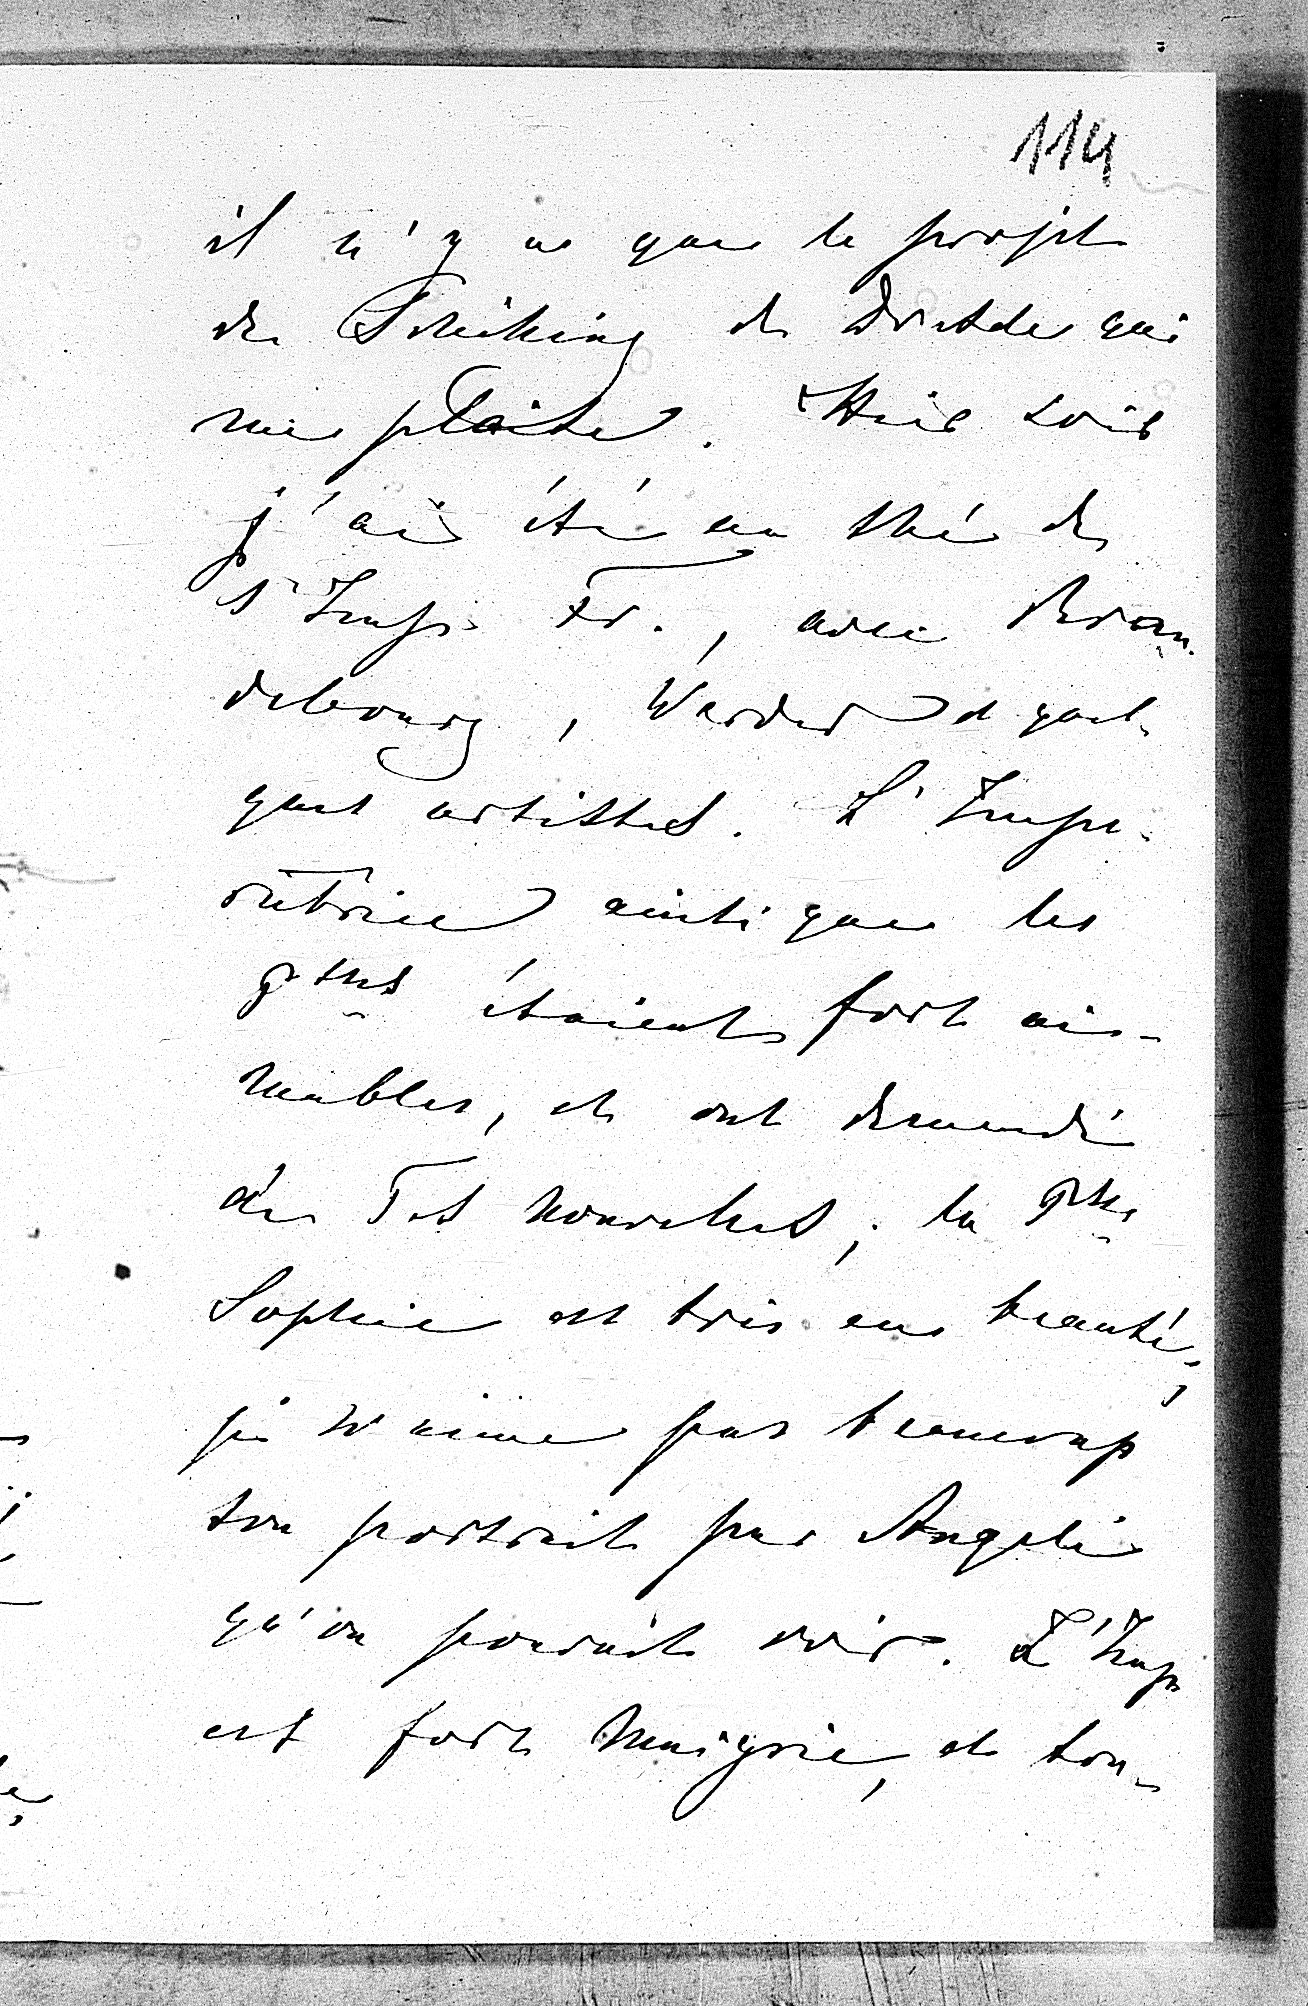 114
il n'y a que le projet
de Schilling de Dresde qui
me plaise. Hier soir
j'ai été au thé de
l'Imp. Fr., avec Bran-
debourg, Werder et quel-
ques artistes. L'Impé-
ratrice ainsi que les
Psses étaient fort ai-
mables, et ont demandé
de Tes nouvelles; la Psse
Sophie est très en beauté;
je n'aime pas beaucoup
son portrait par Angeli
qu'on pouvait voir. L'Imp.
est fort maigrie, et son-